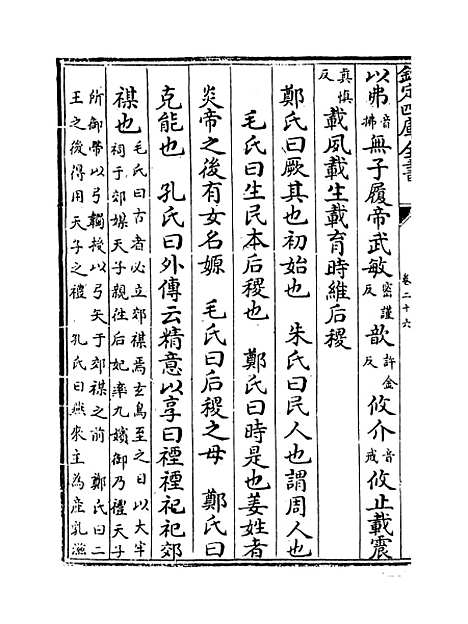 欽定四庫全書
卷二十六
以弗音拂無子履帝武敏密謹反歆許金反攸介音戒攸止載震
真慎反載夙載生載育時維后稷
鄭氏曰厥其也初始也　朱氏曰民人也謂周人也
毛氏曰生民本后稷也　鄭氏曰時是也姜姓者
炎帝之後有女名嫄　毛氏曰后稷之母　鄭氏曰
克能也　孔氏曰外傳云精意以享曰禋禋祀祀郊
禖也
毛氏曰古者必立郊禖焉玄鳥至之日以大牢
祠于郊媒天子親往后妃率九嬪御乃禮天子
所御帶以弓韣授以弓矢于郊禖之前　鄭氏曰二
王之後得用天子之禮　孔氏曰燕來主為產乳滋